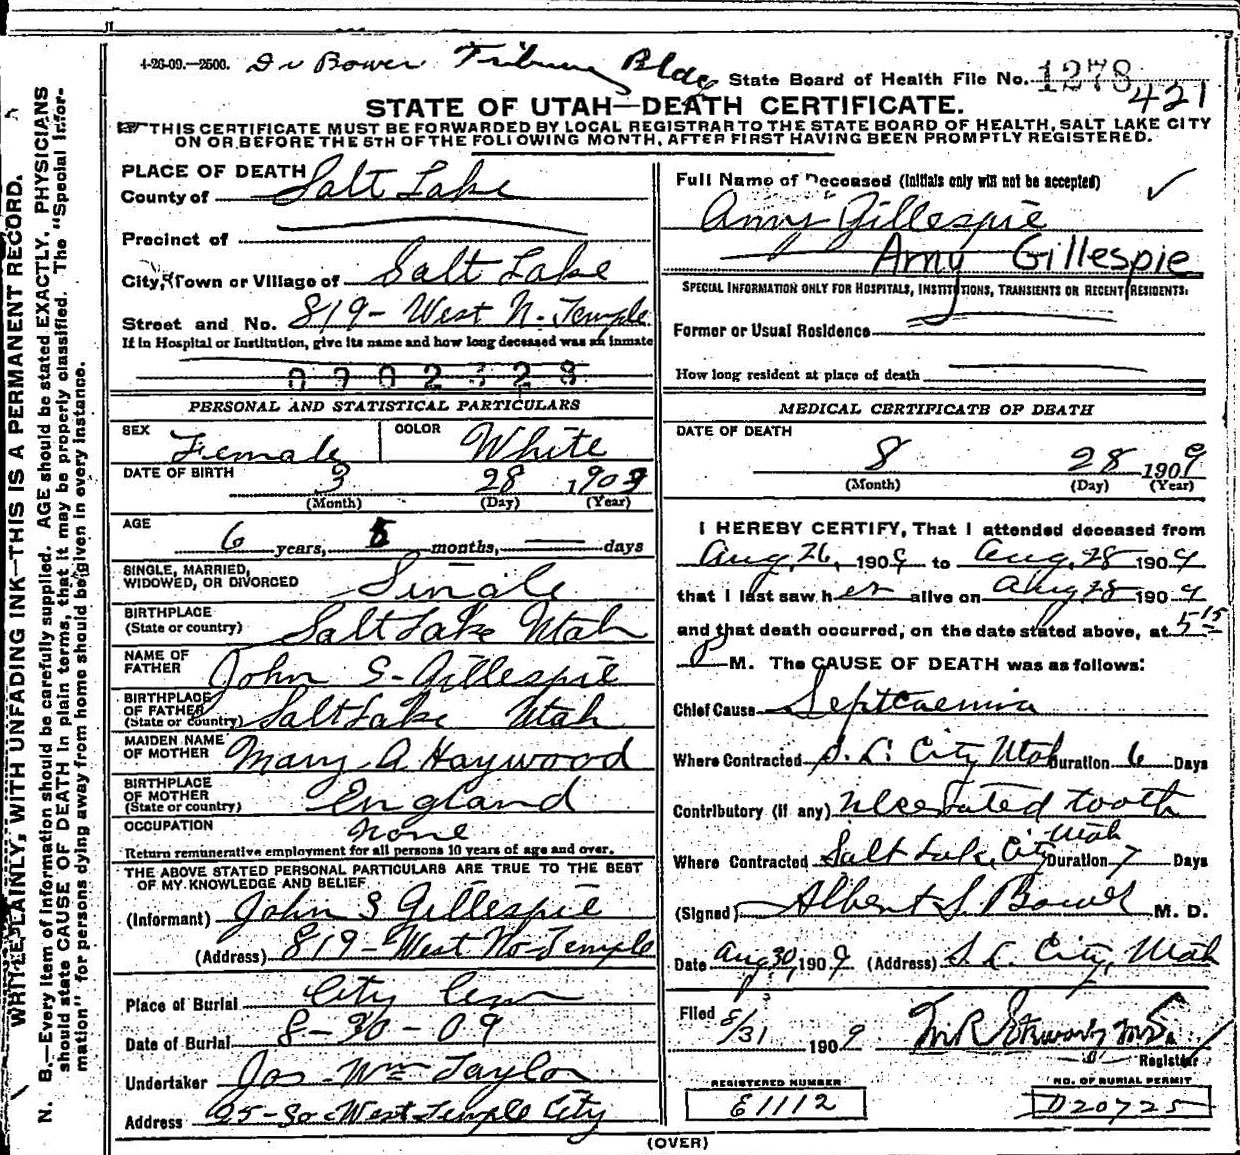 4-26-09.—2500. Dr Bower Tribune Bldg State Board of Health File No. 1278
421
STATE OF UTAH—DEATH CERTIFICATE.
THIS CERTIFICATE MUST BE FORWARDED BY LOCAL REGISTRAR TO THE STATE BOARD OF HEALTH, SALT LAKE CITY
ON OR BEFORE THE 5TH OF THE FOLLOWING MONTH, AFTER FIRST HAVING BEEN PROMPTLY REGISTERED.
WRITE PLAINLY, WITH UNFADING INK—THIS IS A PERMANENT RECORD.
N. B.—Every item of information should be carefully supplied. AGE should be stated EXACTLY. PHYSICIANS
should state CAUSE OF DEATH in plain terms, that it may be properly classified. The "Special Infor-
mation" for persons dying away from home should be given in every instance.
PLACE OF DEATH
County of Salt Lake
Precinct of
City, Town or Village of Salt Lake
Street and No. 819- West N. Temple
If in Hospital or Institution, give its name and how long deceased was an inmate
0902328
PERSONAL AND STATISTICAL PARTICULARS
SEX Female COLOR White
DATE OF BIRTH 3 28 1903
(Month) (Day) (Year)
AGE
6 years, 5 months, — days
SINGLE, MARRIED,
WIDOWED, OR DIVORCED Single
BIRTHPLACE
(State or country) Salt Lake Utah
NAME OF
FATHER John S. Gillespie
BIRTHPLACE
OF FATHER
(State or country) Salt Lake Utah
MAIDEN NAME
OF MOTHER Mary A Haywood
BIRTHPLACE
OF MOTHER
(State or country) England
OCCUPATION None
Return remunerative employment for all persons 10 years of age and over.
THE ABOVE STATED PERSONAL PARTICULARS ARE TRUE TO THE BEST
OF MY KNOWLEDGE AND BELIEF
(Informant) John S Gillespie
(Address) 819- West No Temple
Place of Burial City Cem
Date of Burial 8-30-09
Undertaker Jos- Wm Taylor
Address 25- So West Temple City
Full Name of Deceased (Initials only will not be accepted)
Amy Gillespie
Amy Gillespie
SPECIAL INFORMATION ONLY FOR HOSPITALS, INSTITUTIONS, TRANSIENTS OR RECENT RESIDENTS.
Former or Usual Residence
How long resident at place of death
MEDICAL CERTIFICATE OF DEATH
DATE OF DEATH
8 28 1909
(Month) (Day) (Year)
I HEREBY CERTIFY, That I attended deceased from
Aug. 26, 1909 to Aug. 28 1909
that I last saw her alive on Aug 28 1909
and that death occurred, on the date stated above, at 5 15
P M. The CAUSE OF DEATH was as follows:
Chief Cause Septcaemia
Where Contracted S. L. City Utah Duration 6 Days
Contributory (if any) Ulcerated tooth
Where Contracted Salt Lake City Utah Duration 7 Days
(Signed) Albert S. Bower M. D.
Date Aug 30, 1909 (Address) S. L. City, Utah
Filed 8/31 1909
Registrar
REGISTERED NUMBER
E1112
NO. OF BURIAL PERMIT
D20725
(OVER)